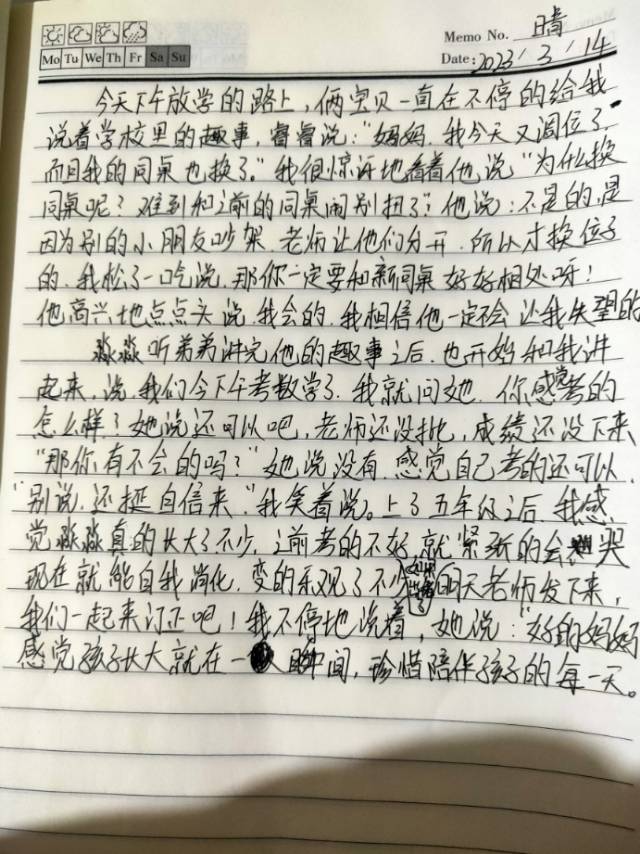 Memo No. 晴
Mo Tu We Th Fr Sa Su
Date: 2023 / 3 / 14
今天下午放学的路上，俩宝贝一直在不停的给我
说着学校里的趣事，睿睿说："妈妈，我今天又调位了，
而且我的同桌也换了。"我很惊讶地看着他，说"为什么换
同桌呢？难到和之前的同桌闹别扭了？他说：不是的，是
因为别的小朋友吵架，老师让他们分开，所以才换位子
的，我松了一口气说，那你一定要和新同桌好好相处呀！
他高兴地点点头说，我会的，我相信他一定不会让我失望的
淼淼听弟弟讲完他的趣事之后，也开始和我讲
起来，说，我们今下午考数学了，我就问她，你感觉考的
怎么样？她说还可以吧，老师还没批，成绩还没下来
"那你有不会的吗？"她说没有，感觉自己考的还可以，
"别说，还挺自信来，"我笑着说。上了五年级之后，我感
觉淼淼真的长大了不少，之前考的不好，就紧张的会哭
现在就能自我消化，变的乐观了不少，明天老师发下来，
我们一起来订正吧！我不停地说着，她说："好的妈妈
感觉孩子长大就在一瞬间，珍惜陪伴孩子的每一天。